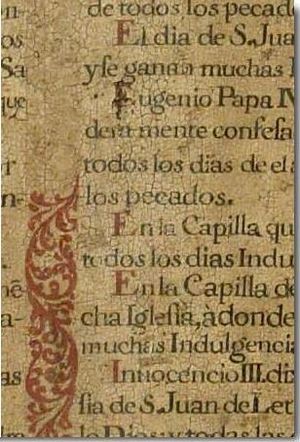 n-
os
Sa
que
r
n-
nē
a-
as
lm
de todos los pecad
El dia de S. Jua
y se ganan muchas I
Eugenio Papa IV
dera mente confesa
todos los dias de el a
los pecados.
En la Capilla qu
todos los dias Indu
En la Capilla de
cha Iglesia, à donde
muchas Indulgencia
Innocencio III. di
sia de S. Juan de Let
lo Dios y todas las